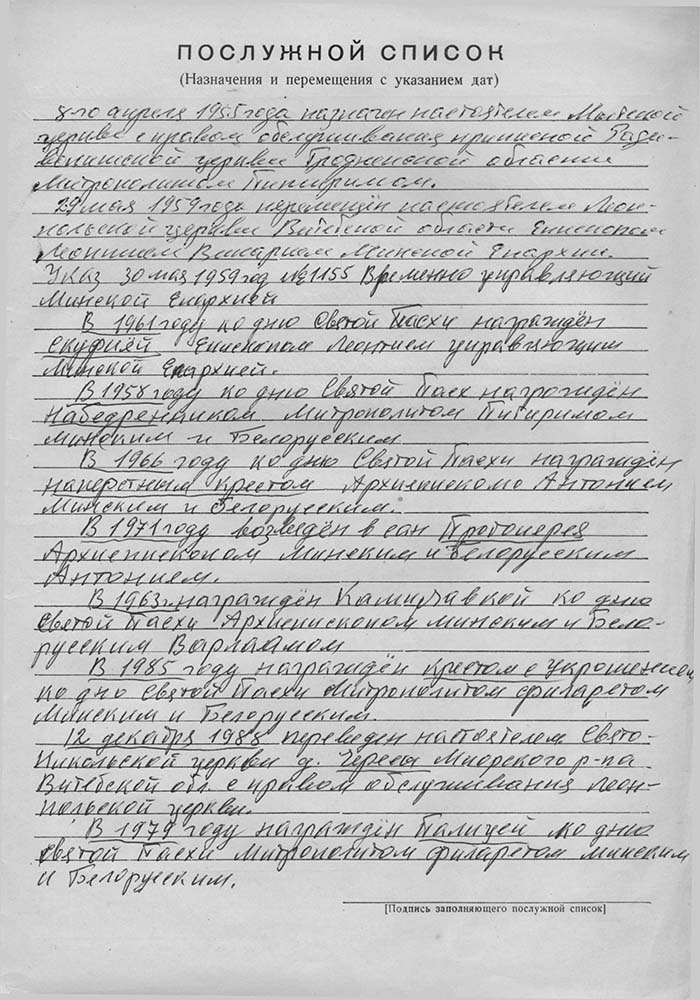 ПОСЛУЖНОЙ СПИСОК
(Назначения и перемещения с указанием дат)
8-го апреля 1955 года назначен настоятелем Мытской
церкви с правом обслуживания приписной Ради-
вонишской церкви Гродненской области
Митрополитом Питиримом.
29 мая 1959 года перемещён настоятелем Леон-
польской церкви Витебской области Епископом
Леонтием Викарием Минской Епархии.
Указ 30 мая 1959 год №1155 Временно управляющий
Минской Епархией
В 1961 году ко дню Святой Пасхи награждён
скуфией Епископом Леонтием управляющим
Минской Епархией.
В 1958 году ко дню Святой Пасх награждён
набедренником Митрополитом Питиримом
Минским и Белорусским
В 1966 году ко дню Святой Пасхи награждён
наперстным крестом Архиепископо Антонием
Минским и Белорусским.
В 1971 году возведён в сан Протоиерея
Архиепископом Минским и Белорусским
Антонием.
В 1963 г. награждён Камилавкой ко дню
Святой Пасхи Архиепископом Минским и Бело-
русским Варлаамом
В 1985 году награждён крестом с украшением
ко дню Святой Пасхи Митрополитом Филаретом
Минским и Белорусским.
12 декабря 1988 переведен настоятелем Свято-
Никольской церкви д. Чересы Миорского р-на
Витебской обл. с правом обслуживания Леон-
польской церкви.
В 1979 году награждён Палицей ко дню
Святой Пасхи Митрополитом Филаретом Минским
и Белорусским.
[Подпись заполняющего послужной список]